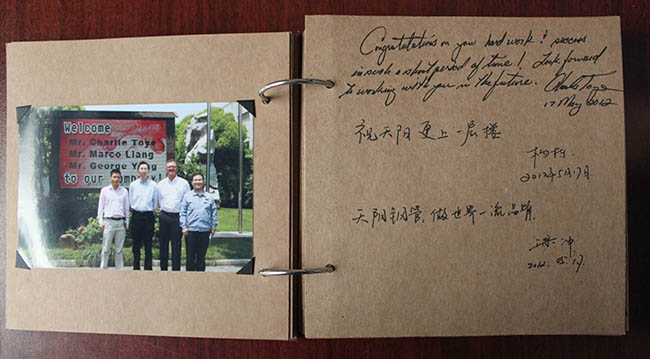 Welcome
Mr. Charlie Toye
Mr. Marco Liang
Mr. George Yang
to our Company!
Congratulations on your hard work & success
in such a short period of time! Look forward
to working with you in the future. Charlie Toye
17 May 2012
祝天阳更上一层楼
2012年5月17日
天阳钢管,做世界一流品牌.
2012.05.17.